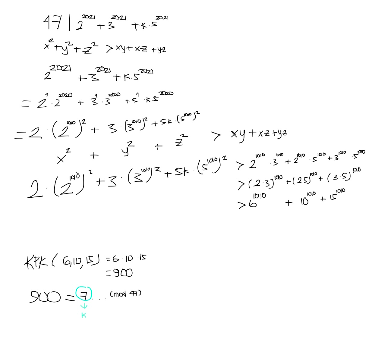 47 | 2^2021 + 3^2021 + k·5^2021
x² + y² + z² > xy + xz + yz
2^2021 + 3^2021 + k·5^2021
= 2·2^2020 + 3·3^2020 + 5·k·5^2020
= 2·(2^1010)² + 3(3^1010)² + 5k(5^1010)²
x² + y² + z² > xy + xz + yz
2·(2^1010)² + 3·(3^1010)² + 5k·(5^1010)² > 2^1010·3^1010 + 2^1010·5^1010 + 3^1010·5^1010
> (2·3)^1010 + (2·5)^1010 + (3·5)^1010
> 6^1010 + 10^1010 + 15^1010
KPK (6,10,15) = 6·10·15
= 900
900 = 7 ... (mod 47)
k